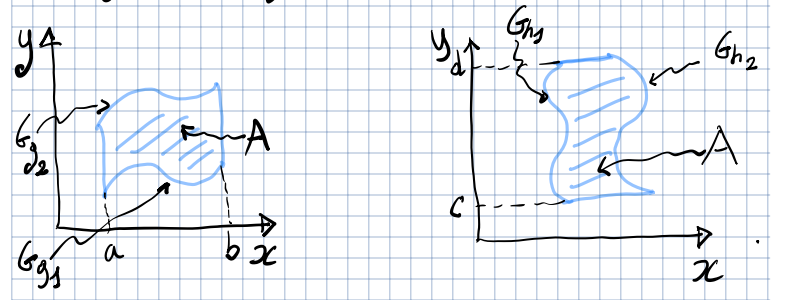 y
G_{g_2}
A
G_{g_1}
a
b
x
G_{h_1}
y
d
G_{h_2}
A
c
x